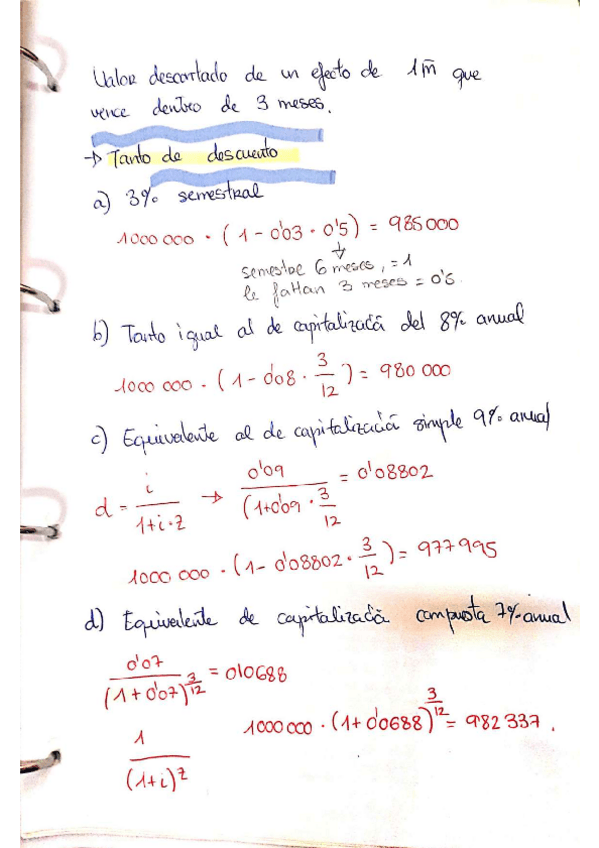 Valor descontado de un efecto de 1m̄ que
vence dentro de 3 meses.
→ Tanto de descuento
a) 3% semestral
1000 000 · (1 - 0'03 · 0'5) = 985000
semestre 6 meses, = 1
le faltan 3 meses = 0'5.
b) Tanto igual al de capitalizacā del 8% anual
1000 000 · (1 - 0'08 · 3/12) = 980 000
c) Equivalente al de capitalizacā simple 9% anual
d = i/(1+i·z) → 0'09/(1+0'09 · 3/12 = 0'08802
1000 000 · (1 - 0'08802 · 3/12) = 977995
d) Equivalente de capitalizacā compuesta 7% anual
0'07/(1+0'07)^3/12 = 010688
1000000 · (1+0'0688)^3/12 = 982337.
1/(1+i)^z